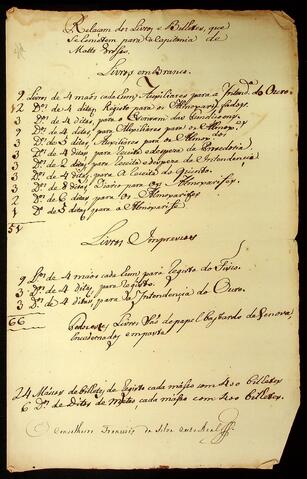 Relaçam dos Livros e Billetes, que
se remetem para a Capitania de
Matto Grosso.
Livros em Branco.
9 Livros de 4 mãos cada hum Auxiliares para a Intend.ª do Ouro.
12 D.os de 4 ditas, Registo para os Almoxarifados
3 D.os de 4 ditas, para o
9 D.os de 4 ditas, para Auxiliares para os Almox.es
3 D.os de 3 ditas, Auxiliares para os Almox.dos
3 D.os de 4 ditas, para Receita e despeza da
3 D.os de 2 ditas, para Receita e despeza da Intendencia
3 D.os de 4 ditas, para a Receita do
3 D.os de 8 ditas, Diario para os Almoxarifes
2 D.os de 6 ditas, para os Almoxarifes
1 D.o de 5 ditas, para o Almoxarife
51
Livros Impressos
9 L.os de 4 mãos cada hum para Registo do Fisco.
3 D.os de 4 ditas, para Registo.
3 D.os de 4 ditas, para a Intendencia do Ouro.
66
Livros são de papel bastardo de Genova,
Encadernados em pasta
24 Massos de billetes de Registo cada masso com 400 billetes
6 D.os de Ditos de cada masso com 400 billetes.
Conselheiro Francisco da Silva